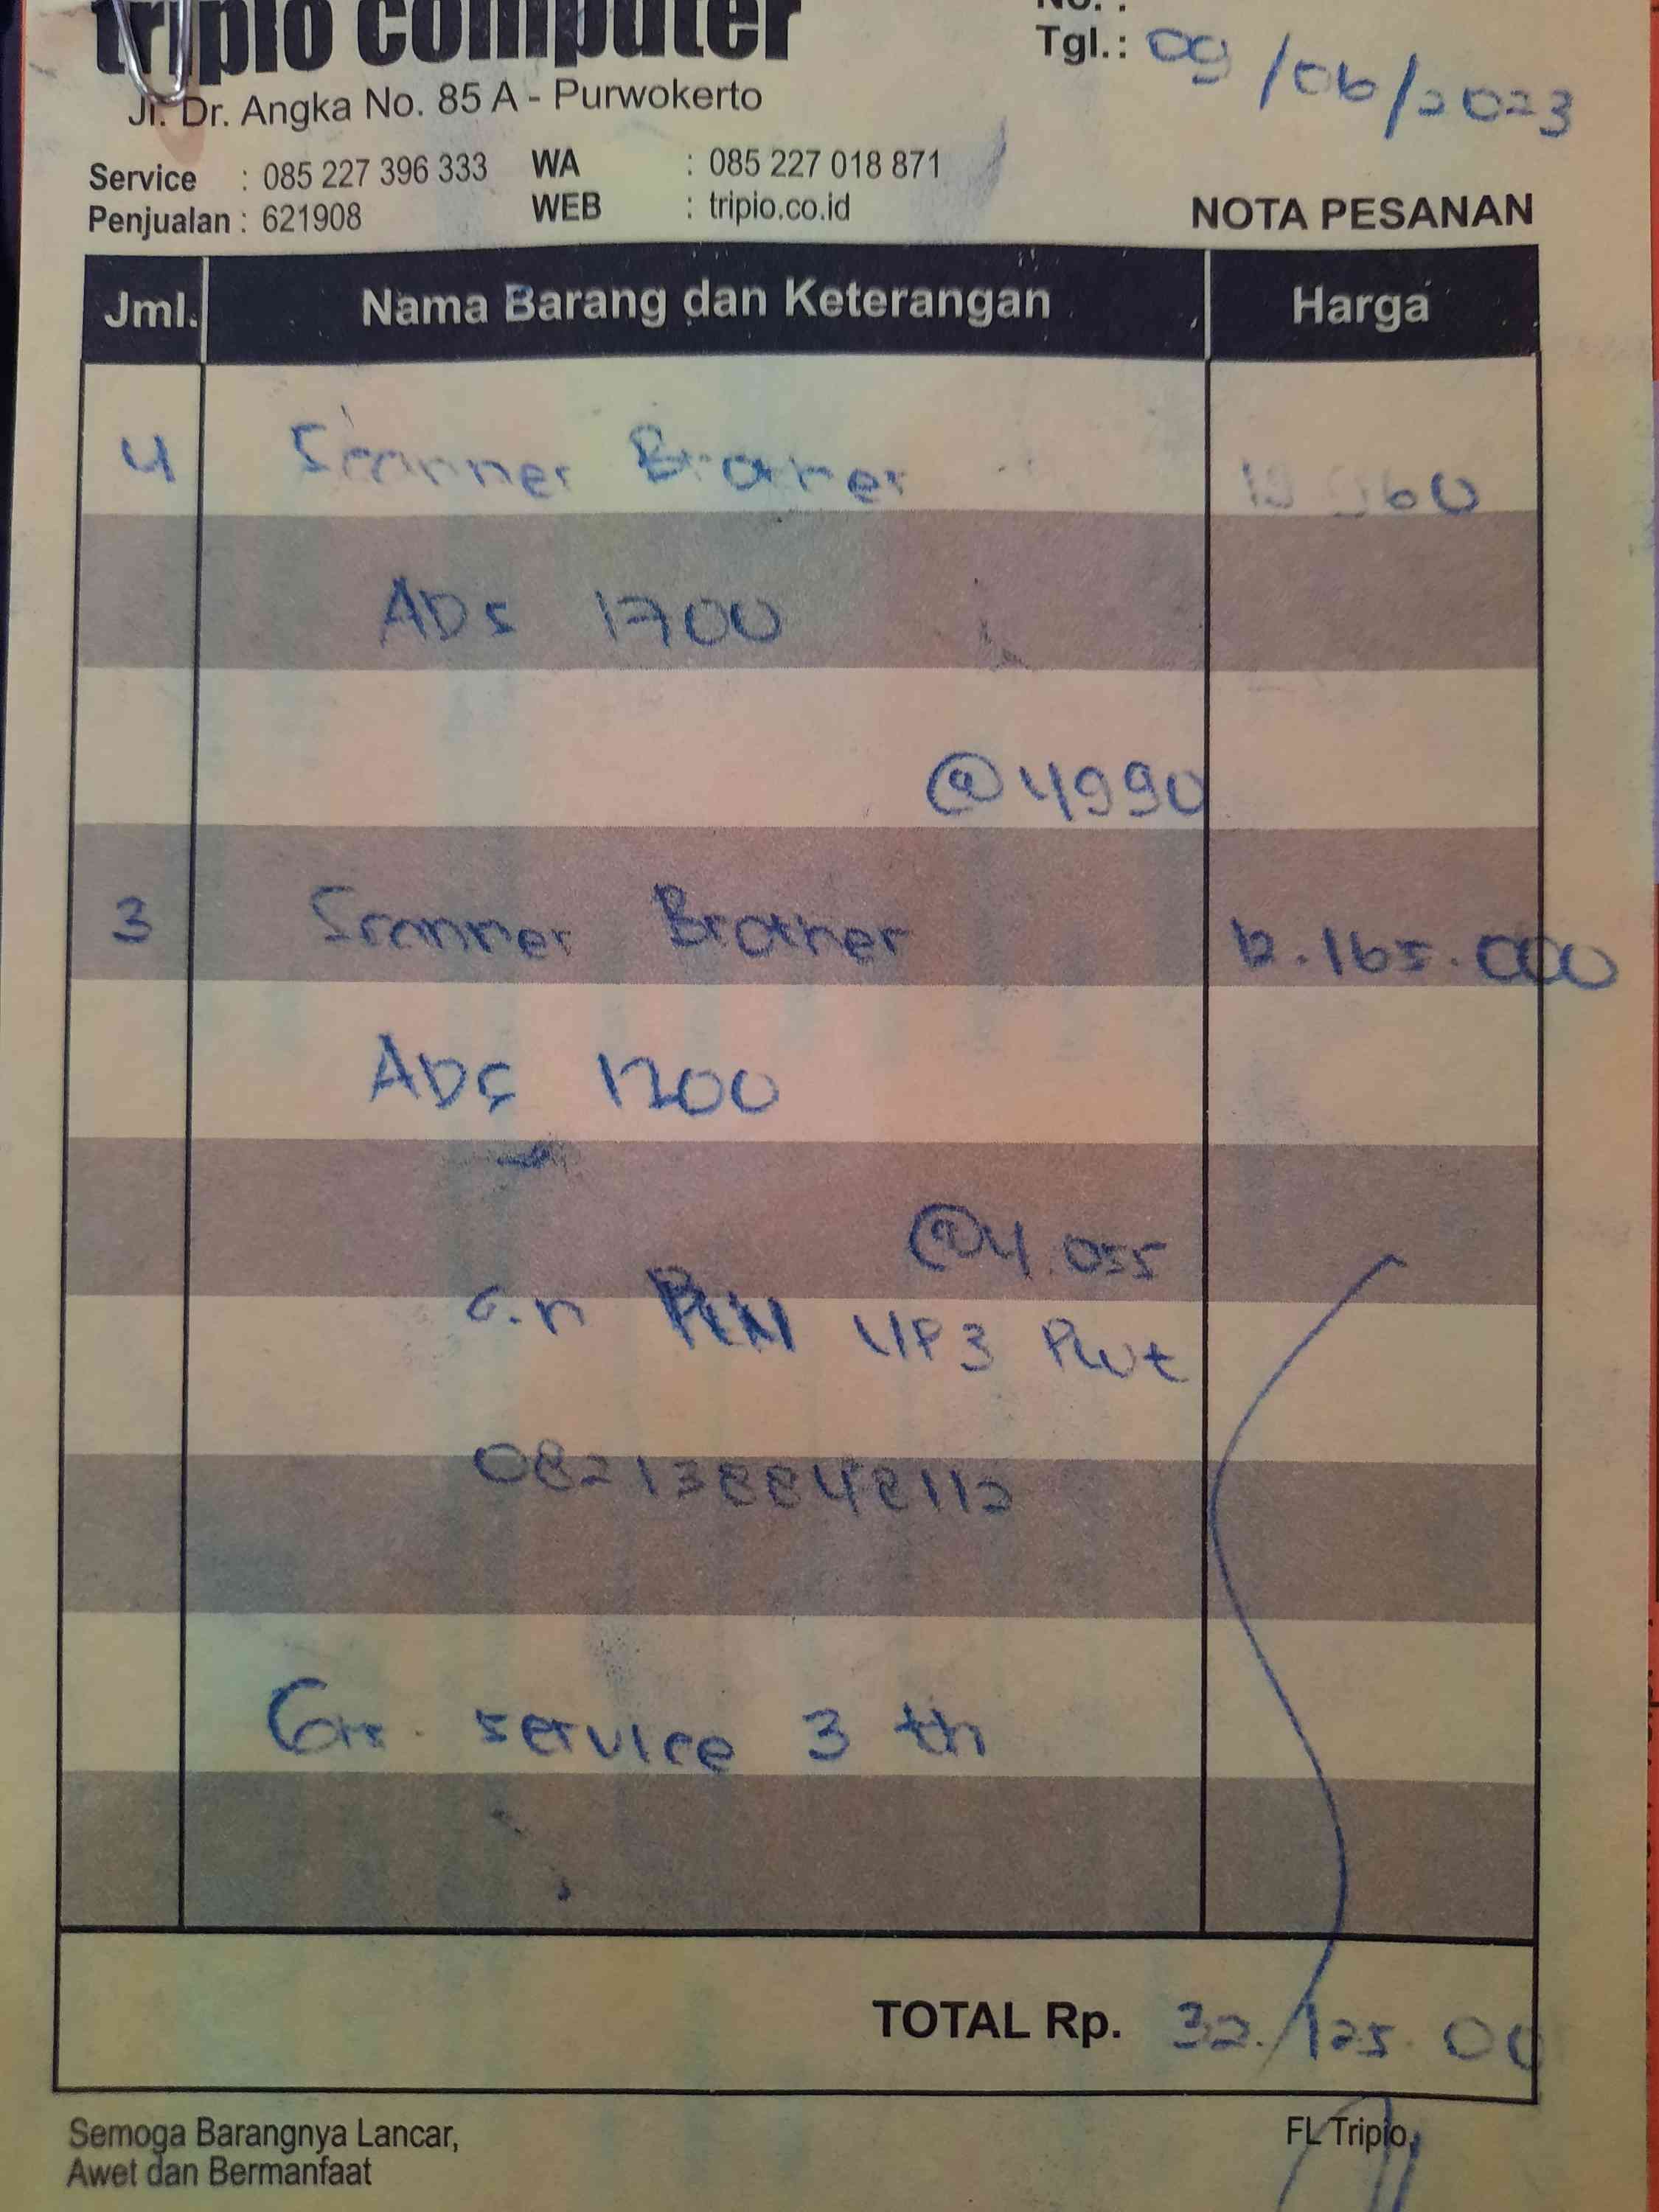 tripio computer
No. :
Tgl.: 09/06/2023
Jl. Dr. Angka No. 85 A - Purwokerto
Service : 085 227 396 333 WA : 085 227 018 871
Penjualan : 621908 WEB : tripio.co.id
NOTA PESANAN
Jml. Nama Barang dan Keterangan Harga
4 Scanner Brother 19 960
ADS 1700
@4990
3 Scanner Brother 12.165.000
ADS 1200
@4.055
a.n PLN UP3 Pwt
082138848112
Gar. service 3 th
TOTAL Rp. 32.125.00
Semoga Barangnya Lancar,
Awet dan Bermanfaat
FL Tripio,